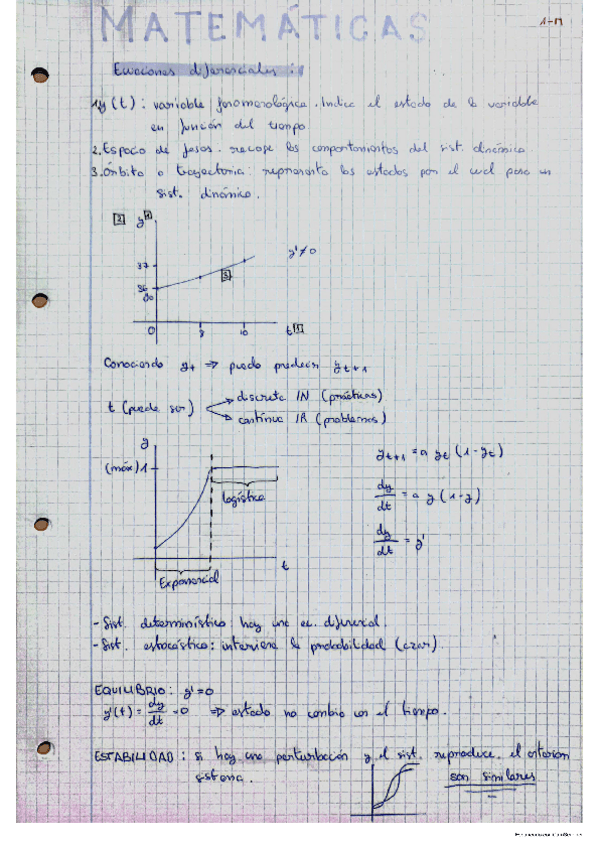 MATEMÁTICAS
1-M
Ecuaciones diferenciales:
1.y(t): variable fenomenológica. Indica el estado de la variable
en función del tiempo
2.Espacio de fases. recoge los comportamientos del sist. dinámico
3.Órbita o trayectoria: representa los estados por el cual pasa un
sist. dinámico.
2 y 1
y'≠0
37
3
36
0 10 t 1
Conociendo yt ⇒ puedo predecir yt+1
t (puede ser) → discreta IN (prácticas)
→ continua IR (problemas)
y
(máx) 1
logística
t
Exponencial
yt+1 = a yt (1-yt)
dy/dt = a y (1-y)
dy/dt = y'
- Sist. determinístico hay una ec. diferencial.
- Sist. estocástico: interviene la probabilidad (azar).
EQUILIBRIO: y'=0
y'(t) = dy/dt = 0 ⇒ estado no cambia en el tiempo.
ESTABILIDAD: si hay una perturbación y el sist. reproduce el anterior
sistema.
son similares